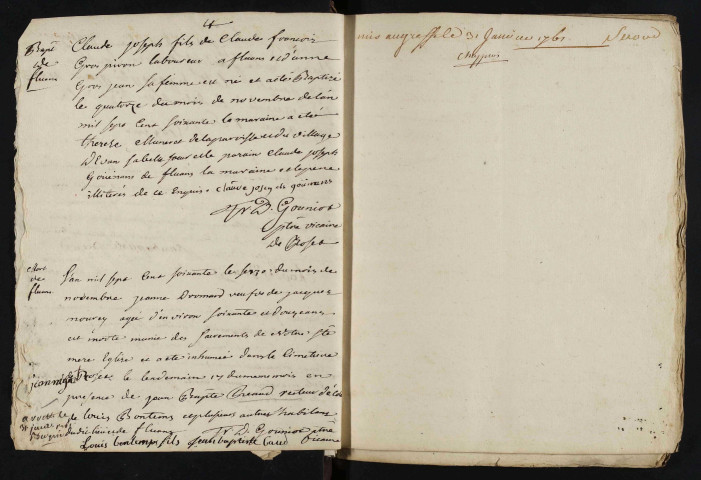 4
Bapt
de
fluans
Claude joseph fils de Claude françois
Gros piron laboureur a fluans et d'anne
Gros jean sa femme est né et a été Baptizé
le quatorze du mois de novembre de l'an
mil sept Cent soixante le maraine a été
therese de la parroisse et du village
D'Evan le parain Claude joseph
Gouinans de fluans la maraine et le pere
illiterés de ce Enquis Claude joseph gouinans
Gouniot
ptre vicaire
De Roset
Mort
de
fluans
L'an mil sept Cent soixante le seize du mois de
novembre jeanne Dromard veufve de jacques
nourey agé d'environ soixante et Douze ans
est morte munie des sacrements de Notre Ste
mere Eglise et a été inhumée dans le Cimetiere
de Roset le lendemain 17 du meme mois en
presence de jean Bapte recteur d'école
de louis Bontems et plusieurs autres habitans
dudit lieu de fluans Gouniot ptre
Louis bontemps fils jean baptiste vicaire
mis au greffe le 31 Janvier 1761